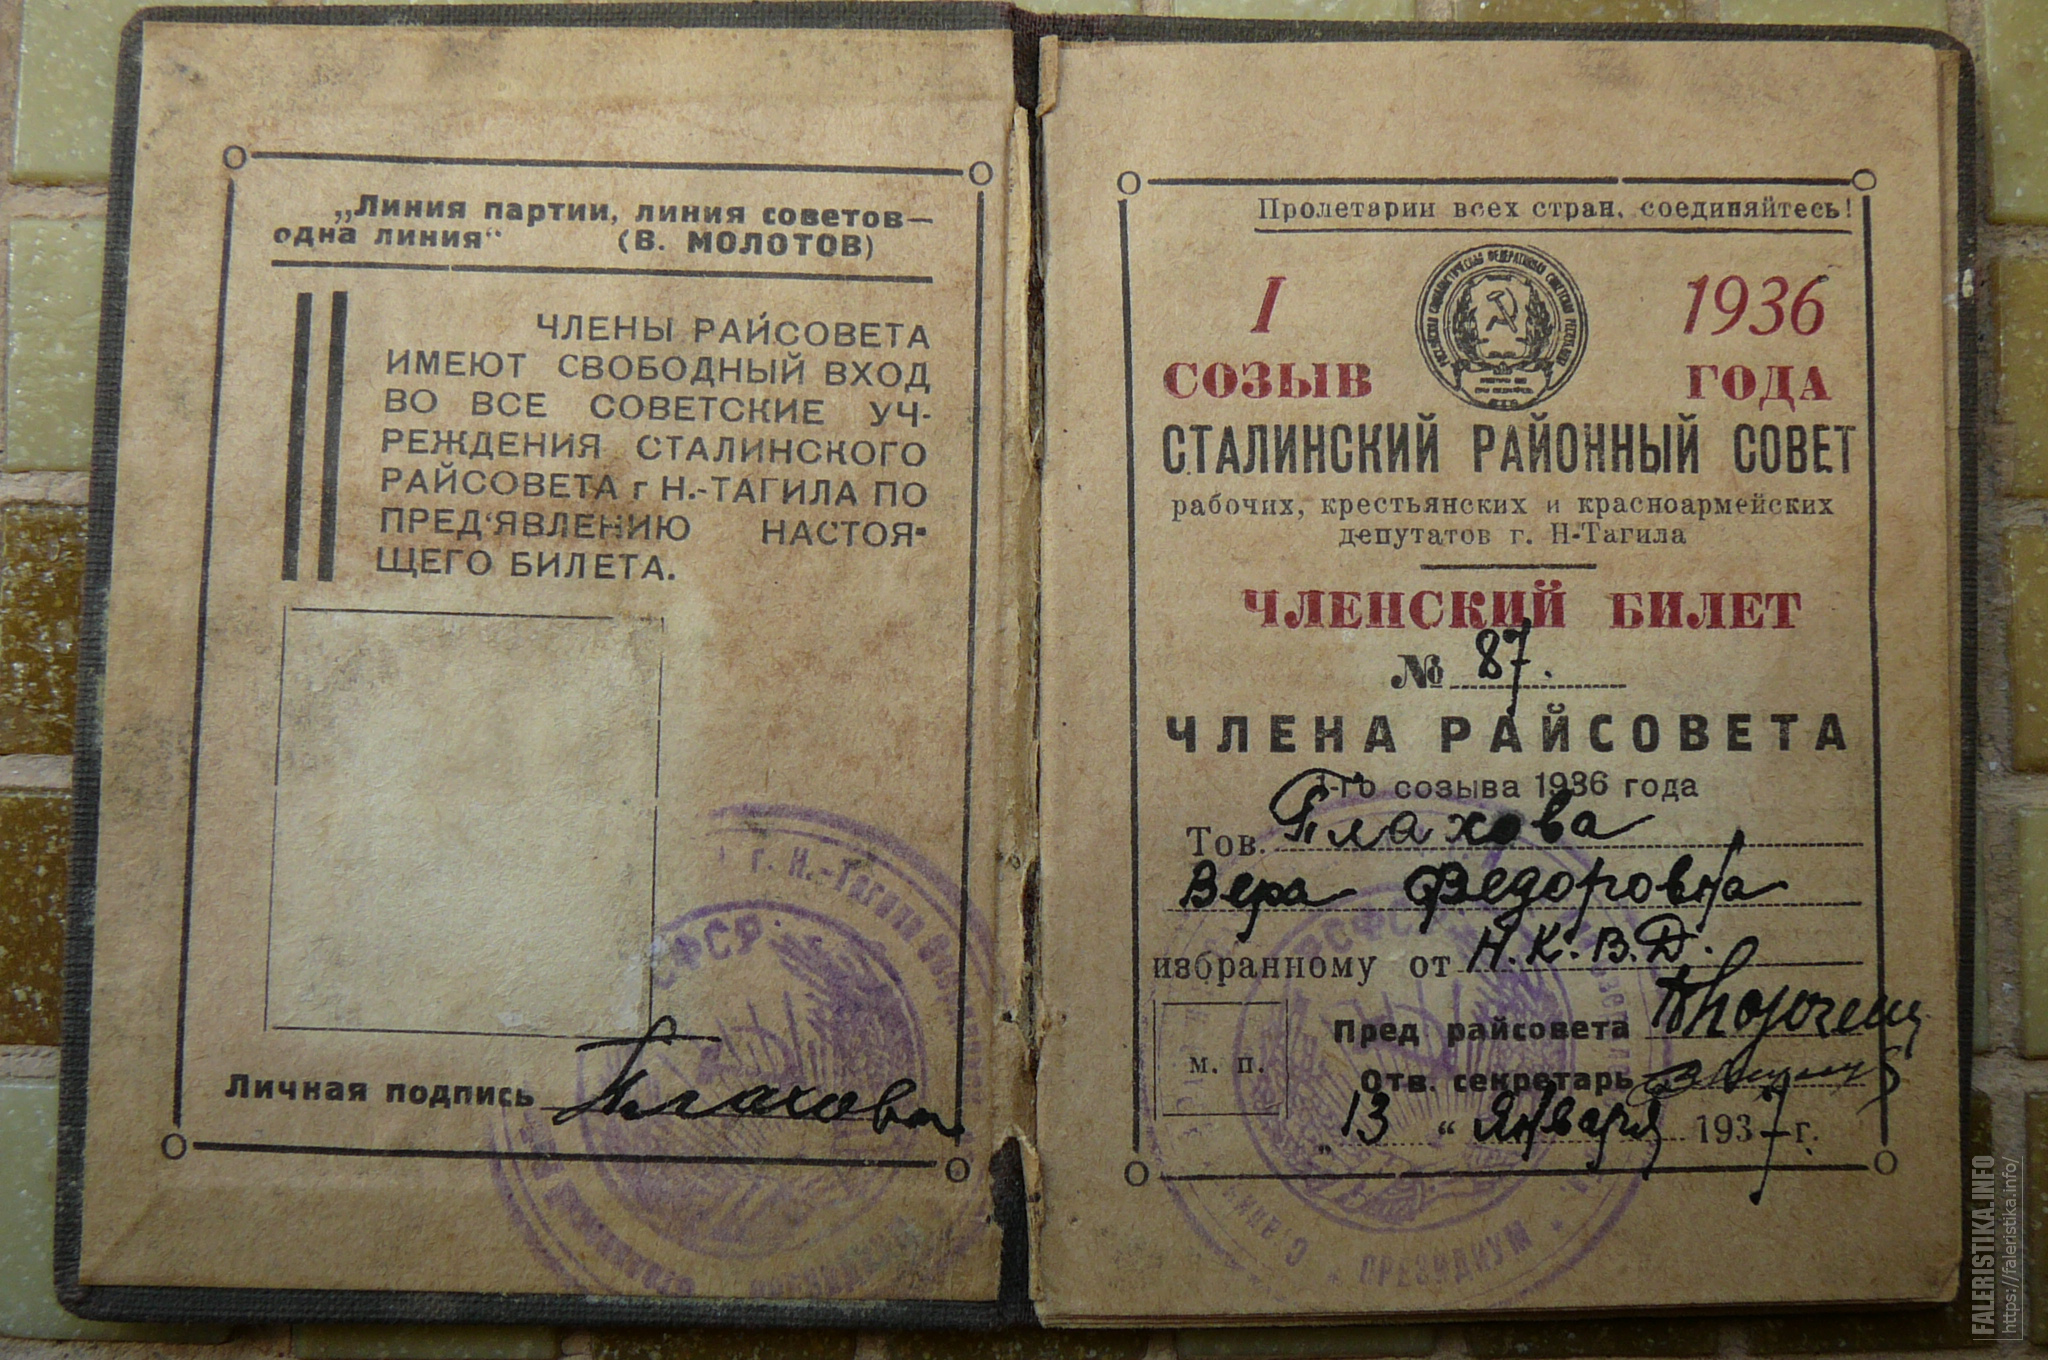 „Линия партии, линия советов—
одна линия“ (В. МОЛОТОВ)
ЧЛЕНЫ РАЙСОВЕТА
ИМЕЮТ СВОБОДНЫЙ ВХОД
ВО ВСЕ СОВЕТСКИЕ УЧ-
РЕЖДЕНИЯ СТАЛИНСКОГО
РАЙСОВЕТА г Н.-ТАГИЛА ПО
ПРЕД'ЯВЛЕНИЮ НАСТОЯ-
ЩЕГО БИЛЕТА.
г. Н.-Тагила
РСФСР
Личная подпись Плахова
Пролетарии всех стран, соединяйтесь!
I 1936
СОЗЫВ ГОДА
СТАЛИНСКИЙ РАЙОННЫЙ СОВЕТ
рабочих, крестьянских и красноармейских
депутатов г. Н-Тагила
ЧЛЕНСКИЙ БИЛЕТ
№ 87.
ЧЛЕНА РАЙСОВЕТА
1-го созыва 1936 года
Тов. Плахова
Вера Федоровна
избранному от Н.К.В.Д.
Пред райсовета
м. п.
Отв. секретарь
„13“ Января 1937 г.
РСФСР
* ПРЕЗИДИУМ *
FALERISTIKA.INFO
https://faleristika.info/